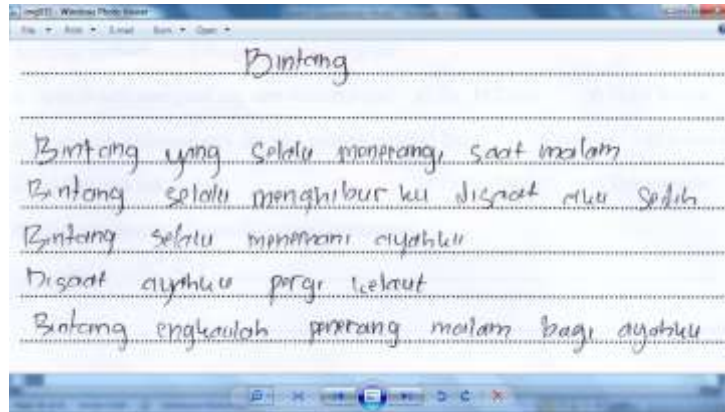 img033 - Windows Photo Viewer
File Print E-mail Burn Open
Bintang
Bintang yang selalu menerangi saat malam
Bintang selalu menghibur ku disaat aku sedih
Bintang selalu menemani ayahku
Disaat ayahku pergi kelaut
Bintang engkaulah penerang malam bagi ayahku